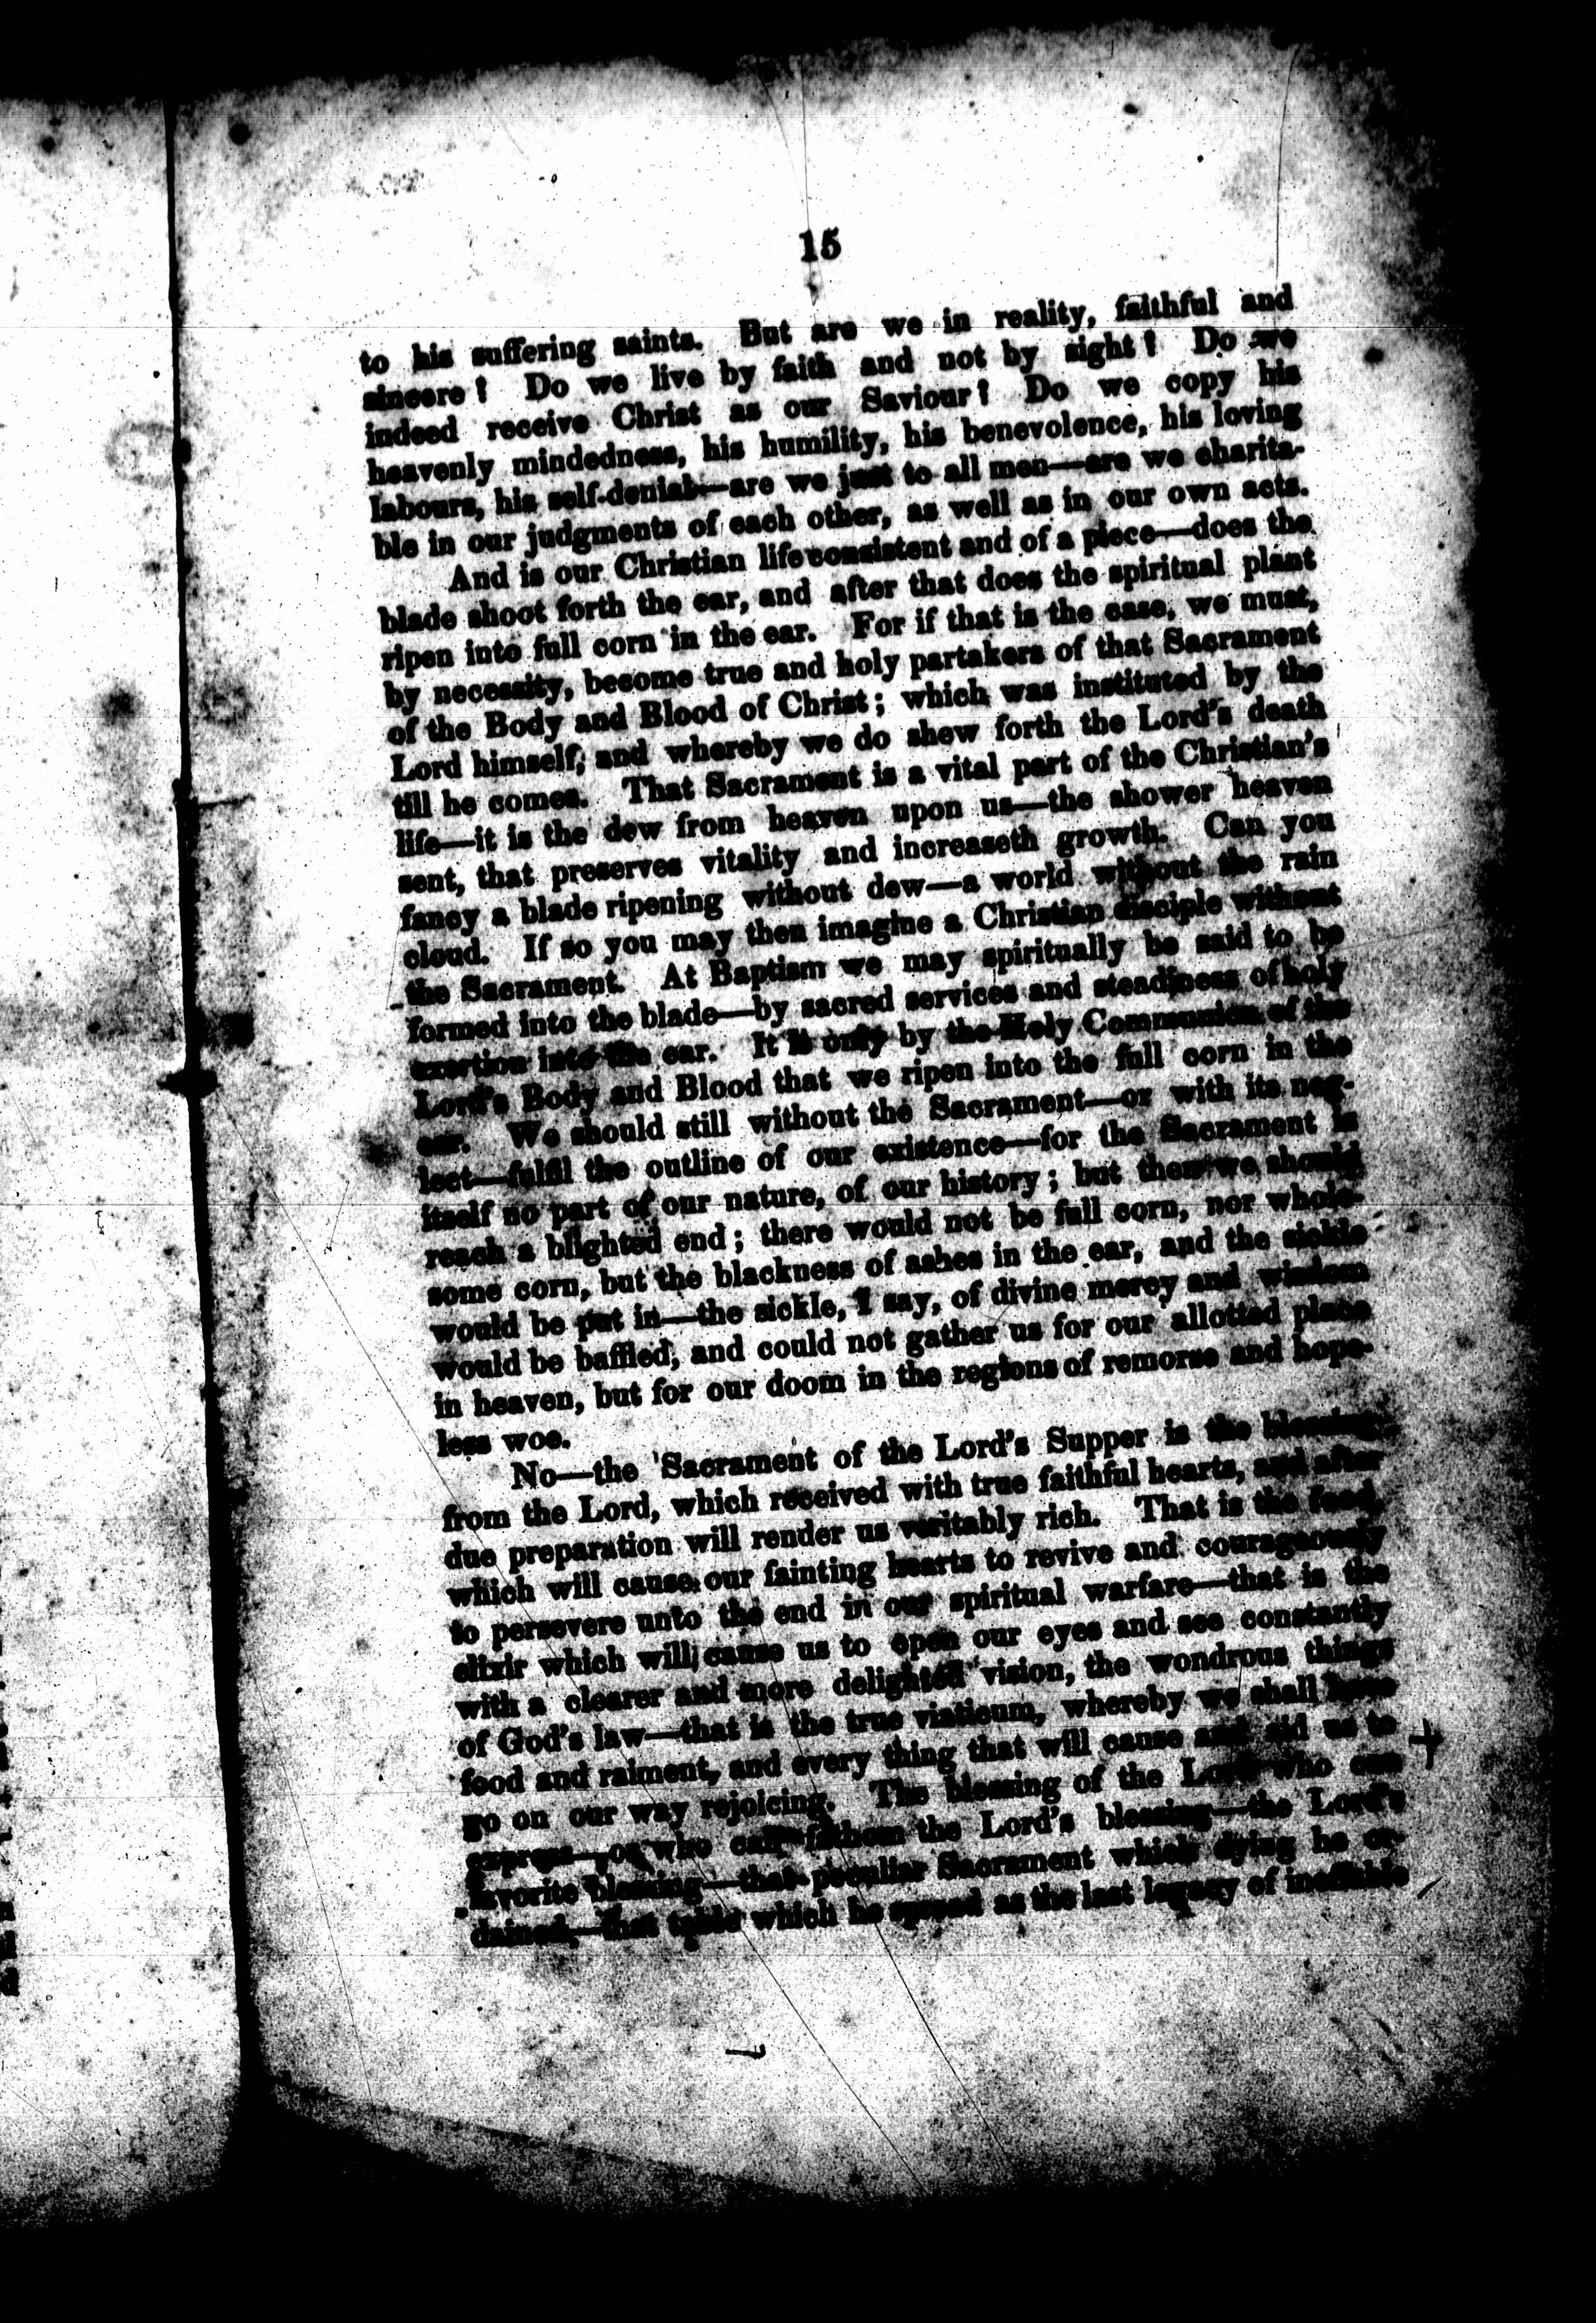 15
to his suffering saints. But are we in reality, faithful and
sincere? Do we live by faith and not by sight? Do we
indeed receive Christ as our Saviour? Do we copy his
heavenly mindedness, his humility, his benevolence, his loving
labours, his self-denial—are we just to all men—are we charita-
ble in our judgments of each other, as well as in our own acts.
And is our Christian life consistent and of a piece—does the
blade shoot forth the ear, and after that does the spiritual plant
ripen into full corn in the ear. For if that is the case, we must,
by necessity, become true and holy partakers of that Sacrament
of the Body and Blood of Christ; which was instituted by the
Lord himself, and whereby we do shew forth the Lord's death
till he comes. That Sacrament is a vital part of the Christian's
life—it is the dew from heaven upon us—the shower heaven
sent, that preserves vitality and increaseth growth. Can you
fancy a blade ripening without dew—a world without the rain
cloud. If so you may then imagine a Christian disciple without
the Sacrament. At Baptism we may spiritually be said to be
formed into the blade—by sacred services and steadiness of holy
exertion into the ear. It is only by the Holy Communion of the
Lord's Body and Blood that we ripen into the full corn in the
ear. We should still without the Sacrament—or with its neg-
lect—fulfil the outline of our existence—for the Sacrament is
itself no part of our nature, of our history; but then we should
reach a blighted end; there would not be full corn, nor whole-
some corn, but the blackness of ashes in the ear, and the sickle
would be put in—the sickle, I say, of divine mercy and wisdom
would be baffled, and could not gather us for our allotted place
in heaven, but for our doom in the regions of remorse and hope-
less woe.
No—the Sacrament of the Lord's Supper is the blessing
from the Lord, which received with true faithful hearts, and after
due preparation will render us veritably rich. That is the food,
which will cause our fainting hearts to revive and courageously
to persevere unto the end in our spiritual warfare—that is the
elixir which will cause us to open our eyes and see constantly
with a clearer and more delighted vision, the wondrous things
of God's law—that is the true viaticum, whereby we shall have
food and raiment, and every thing that will cause and aid us to
go on our way rejoicing. The blessing of the Lord—who can
express—or who can fathom the Lord's blessing—the Lord's
favorite blessing—that peculiar Sacrament which dying he or-
dained,—that table which he spread as the last legacy of ineffable